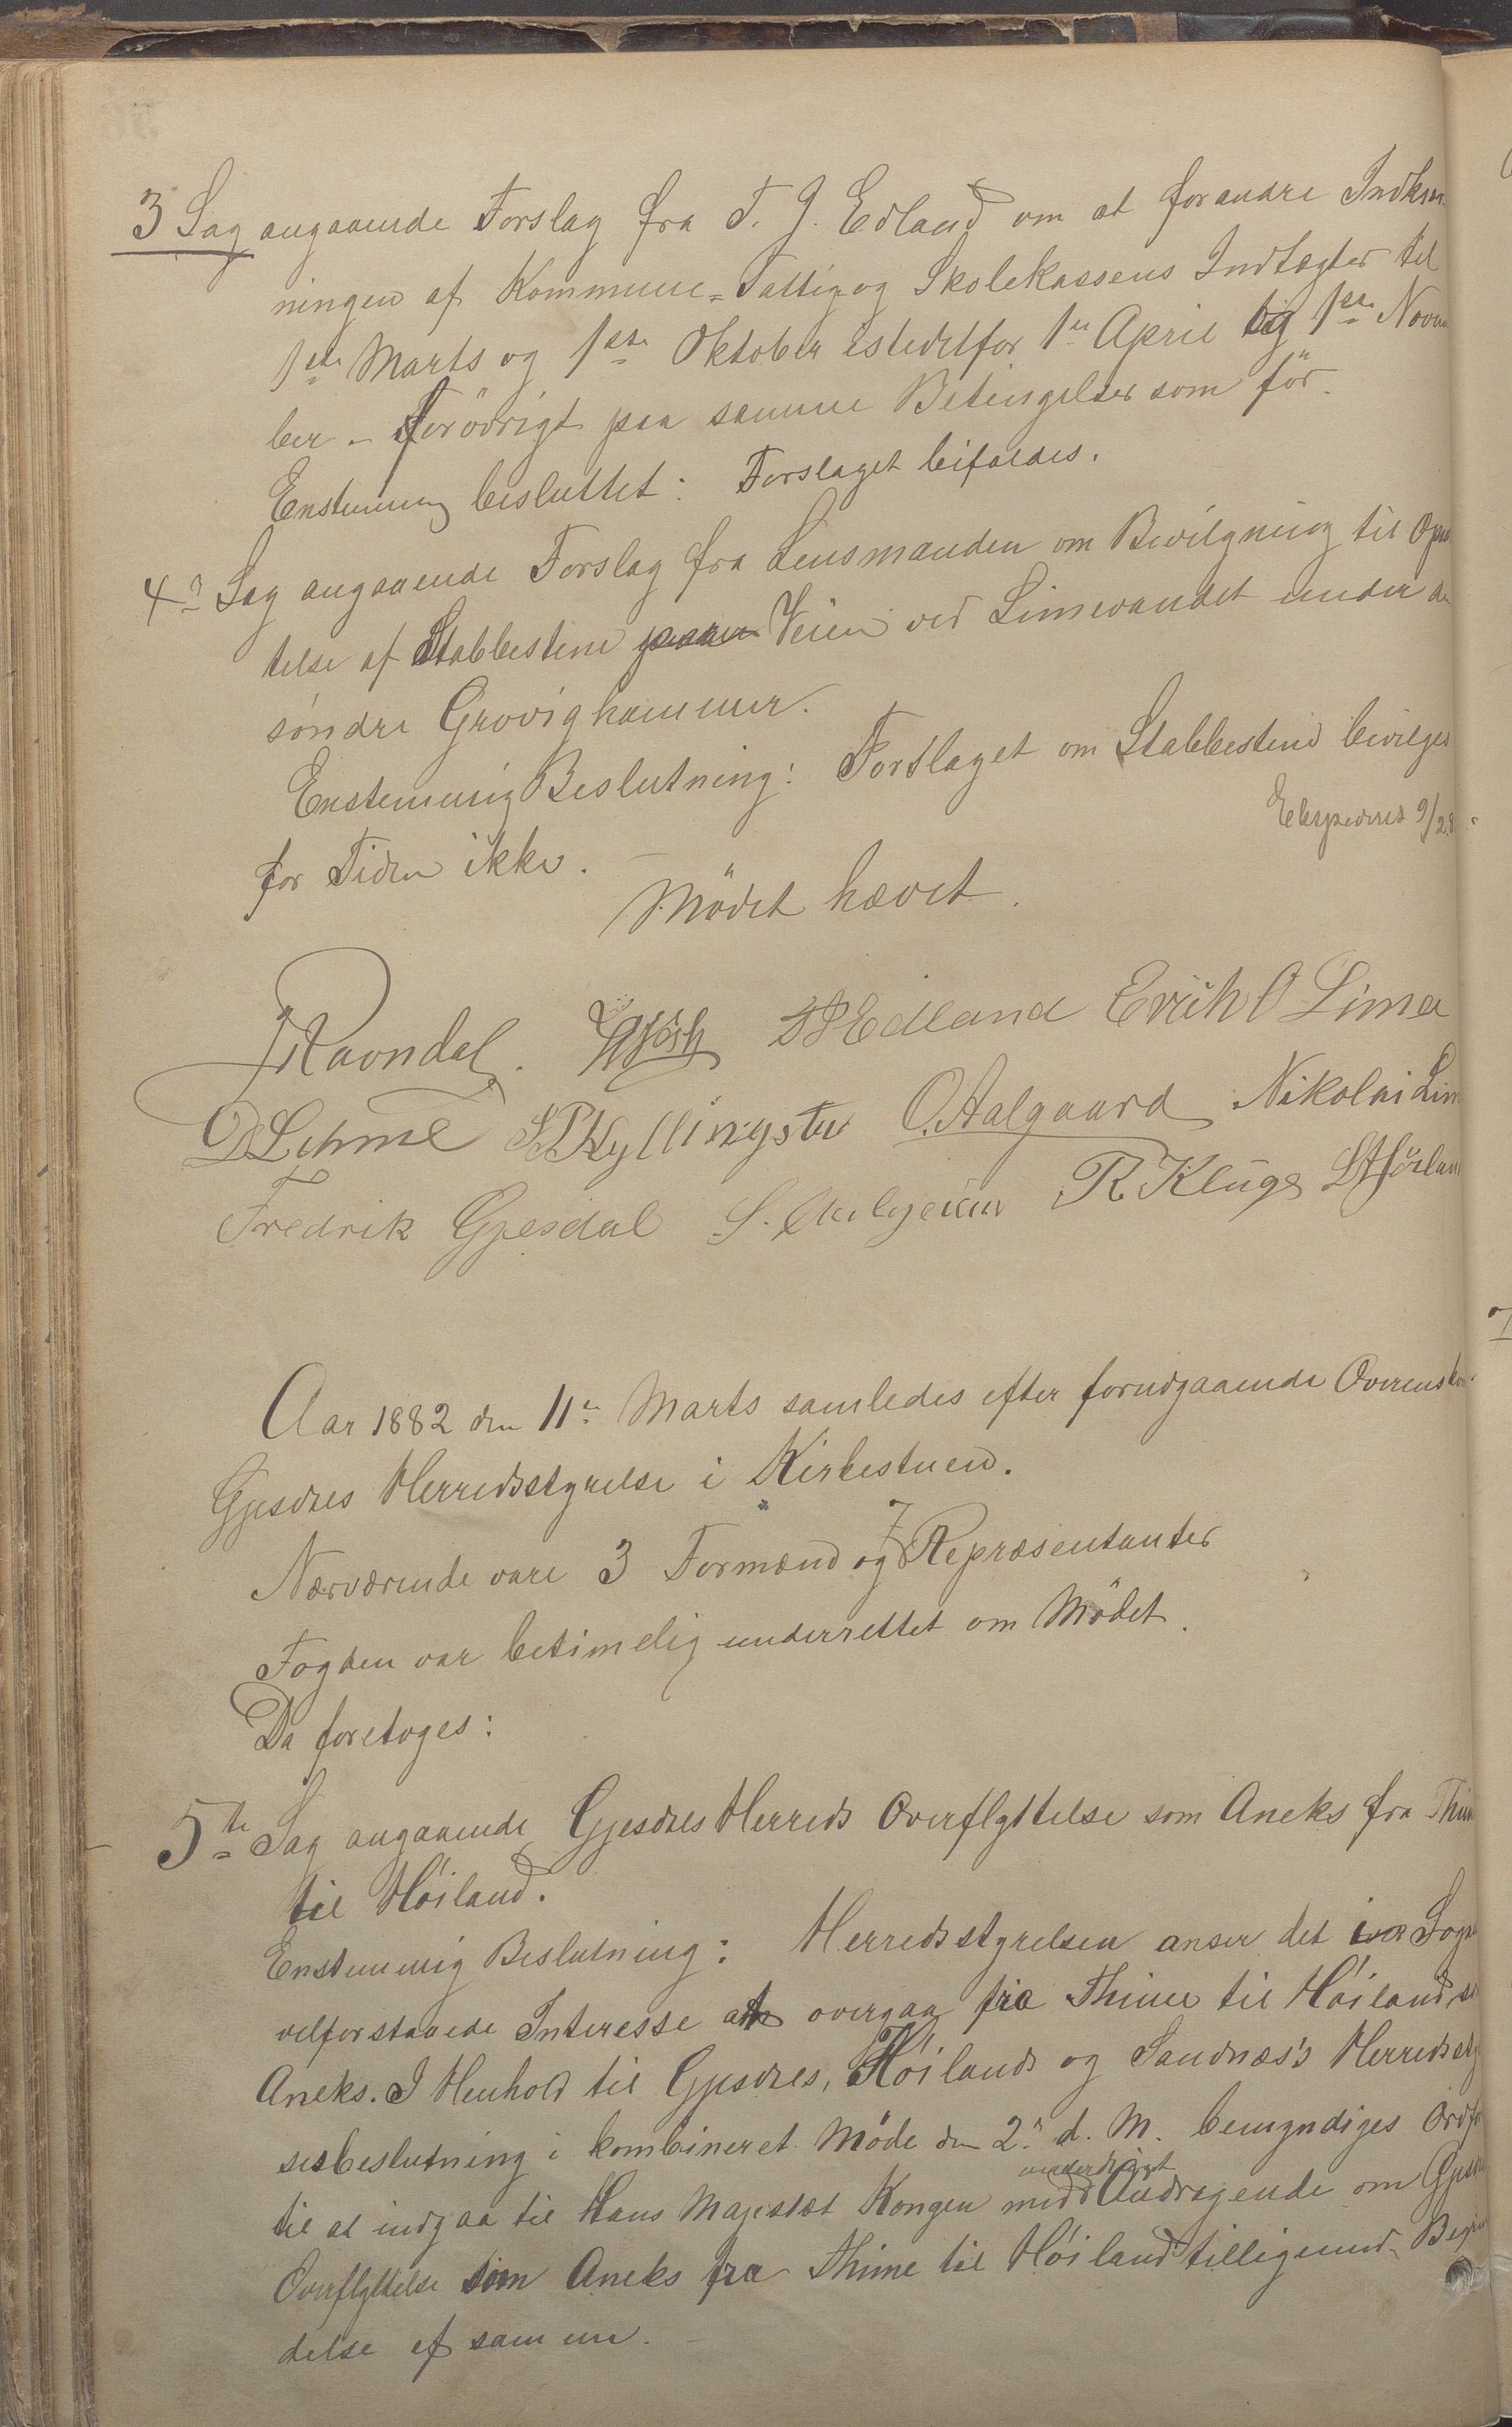 3 Sag angaaende Forslag fra T. J. Edland om at forandre Indkræv-
ningen af Kommune-Fattig og Skolekassens Indtægter til
1ste Marts og 1ste Oktober istedetfor 1te April og 1ste Novem
ber. - Forövrigt paa samme Betingelser som för.
Enstemmig besluttet: Forslaget bifaldes.
4de Sag angaaende Forslag fra Lensmanden om Bevilgning til Opsæ
telse af Stabbestene Veien ved Limevandet under de
söndre Grovighammer.
Enstemmig Beslutning: Forslaget om Stabbestene bevilges
Ekspederes 9/2 8
for Tiden ikke.
Mödet hævet.
Ravndal. TPEdland Erich O Lima
OSLime SPKyllingstv O. Aalgaard Nikolai Lim
Fredrik Gjesdal S. R Kluge
Aar 1882 den 11te Marts samledes efter forudgaaende Overensko
Gjesdals Herredsstyrelse i Kirkestuen.
Nærværende vare 3 Formænd og 7 Repræsentanter
Fogden var betimelig underrettet om Mödet.
Da foretoges:
5te Sag angaaende Gjesdals Herreds Overflyttelse som Aneks fra Thim
til Höiland.
Enstemmig Beslutning: Herredsstyrelsen anser det i Sogn
velforstaaede Interesse at overgaa fra Thime til Höiland s
Aneks. I Henhold til Gjesdals, Höilands og Sandnæs's Herredssty
sesbeslutning i kombineret Möde den 2den d. M. bemyndiges Ordfö
til at indgaa til Hans Majestæt Kongen med underdanigst Andragende om Gjesd
Overflyttelse som Aneks fra Thime til Höiland tilligemed Begrun
delse af samme.